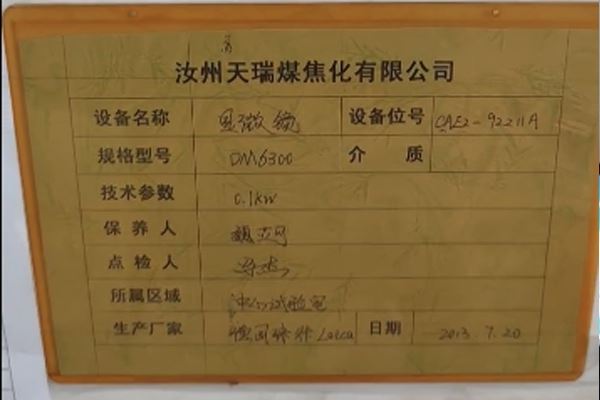 汝州天瑞煤焦化有限公司
设备名称 显微镜 设备位号 CAE2-92211A
规格型号 DM6300 介 质
技术参数 0.1kW
保养人
点检人
所属区域 中心试验室
生产厂家 德国 Leica 日期 2013.7.20